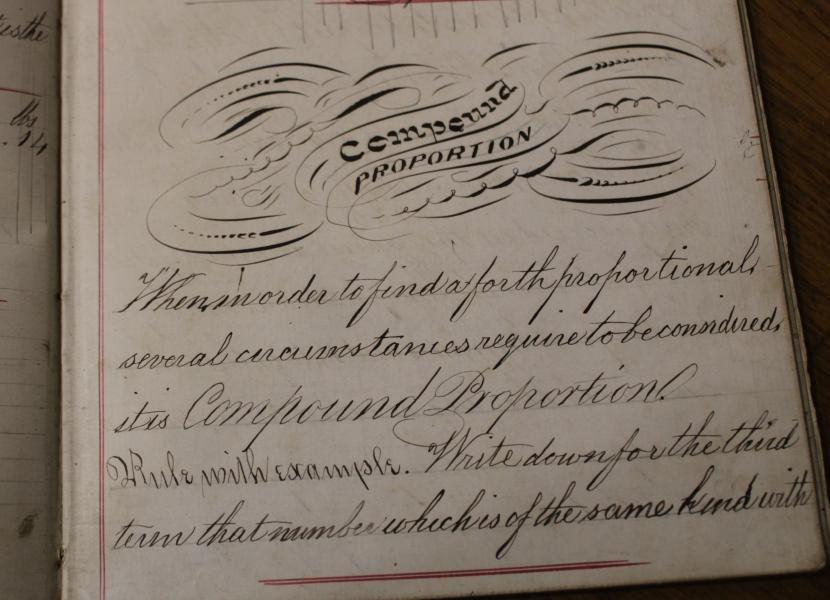 is the
lbs
. 14
Compound
PROPORTION
When, in order to find a forth proportional,
several circumstances require to be considired,
it is Compound Proportion.
Rule with example. Write down for the third
term that number which is of the same kind with